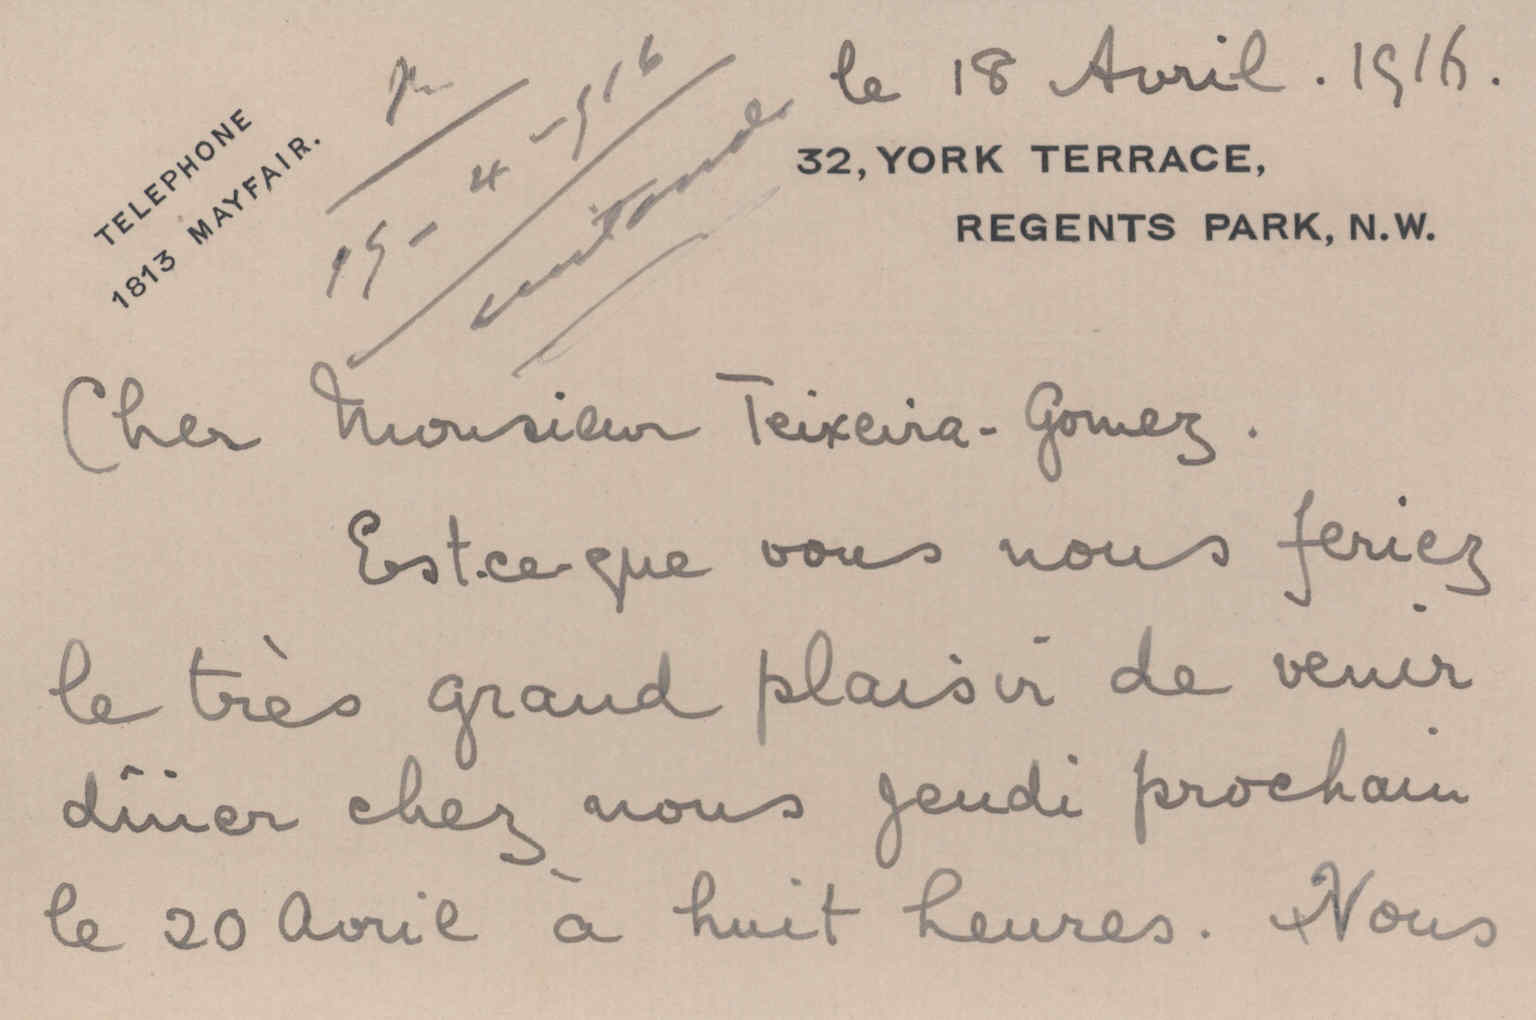 le 18 Avril. 1916.
TELEPHONE
1813 MAYFAIR.
19-4-916
32, YORK TERRACE,
REGENTS PARK, N.W.
Cher Monsieur Teixeira-Gomez.
Est-ce-que vous nous feriez
le très grand plaisir de venir
dîner chez nous jeudi prochain
le 20 Avril à huit heures. Nous